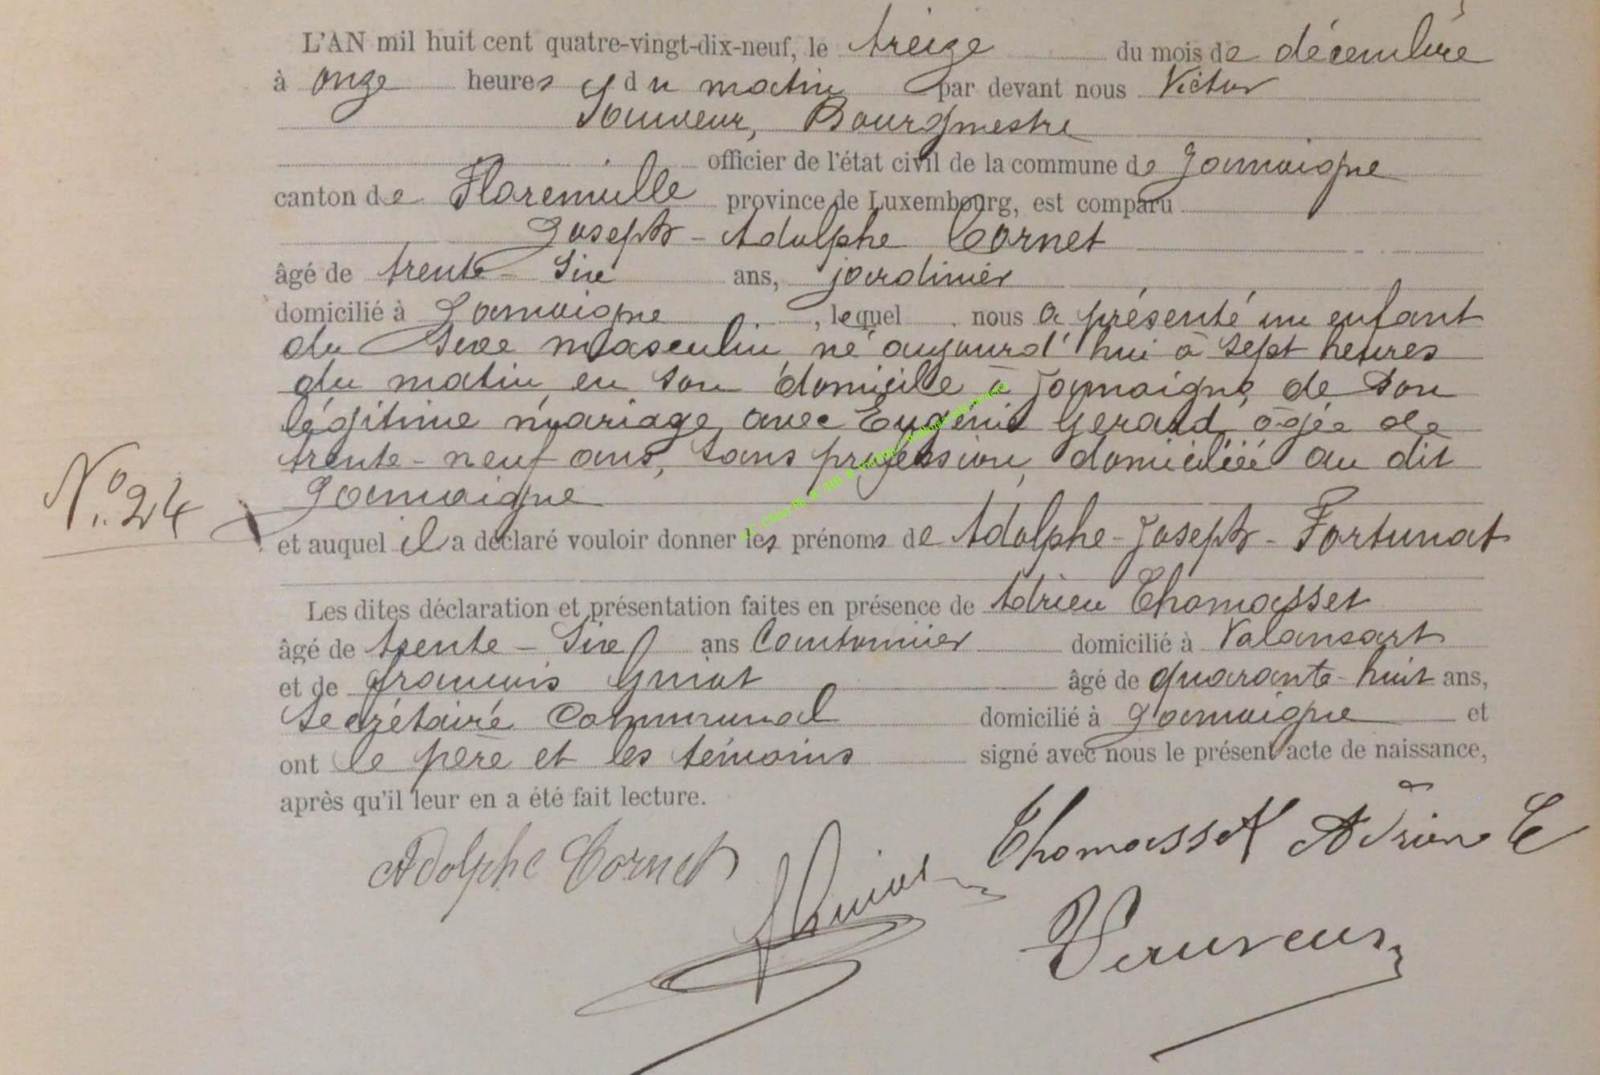 L'AN mil huit cent quatre-vingt-dix-neuf, le treize du mois de décembre
à onze heures du matin par devant nous Victor
Sauveur, Bourgmestre
officier de l'état civil de la commune de Jamoigne
canton de Florenville province de Luxembourg, est comparu
Joseph-Adolphe Cornet
âgé de trente-six ans, jardinier
domicilié à Jamoigne, lequel nous a présenté un enfant
du sexe masculin, né aujourd'hui à sept heures
du matin, en son domicile à Jamoigne, de son
légitime mariage avec Eugénie Gerard, âgée de
trente-neuf ans, sans profession, domiciliée au dit
N° 24
Jamoigne
et auquel il a déclaré vouloir donner les prénoms de Adolphe-Joseph-Fortunat
Les dites déclaration et présentation faites en présence de Adrien Thomasset
âgé de trente-six ans Cantonnier domicilié à Valansart
et de François Guiot âgé de quarante-huit ans,
Secrétaire Communal domicilié à Jamoigne et
ont le père et les témoins signé avec nous le présent acte de naissance,
après qu'il leur en a été fait lecture.
Adolphe Cornet
Thomasset Adrien
Guiot
V Sauveur